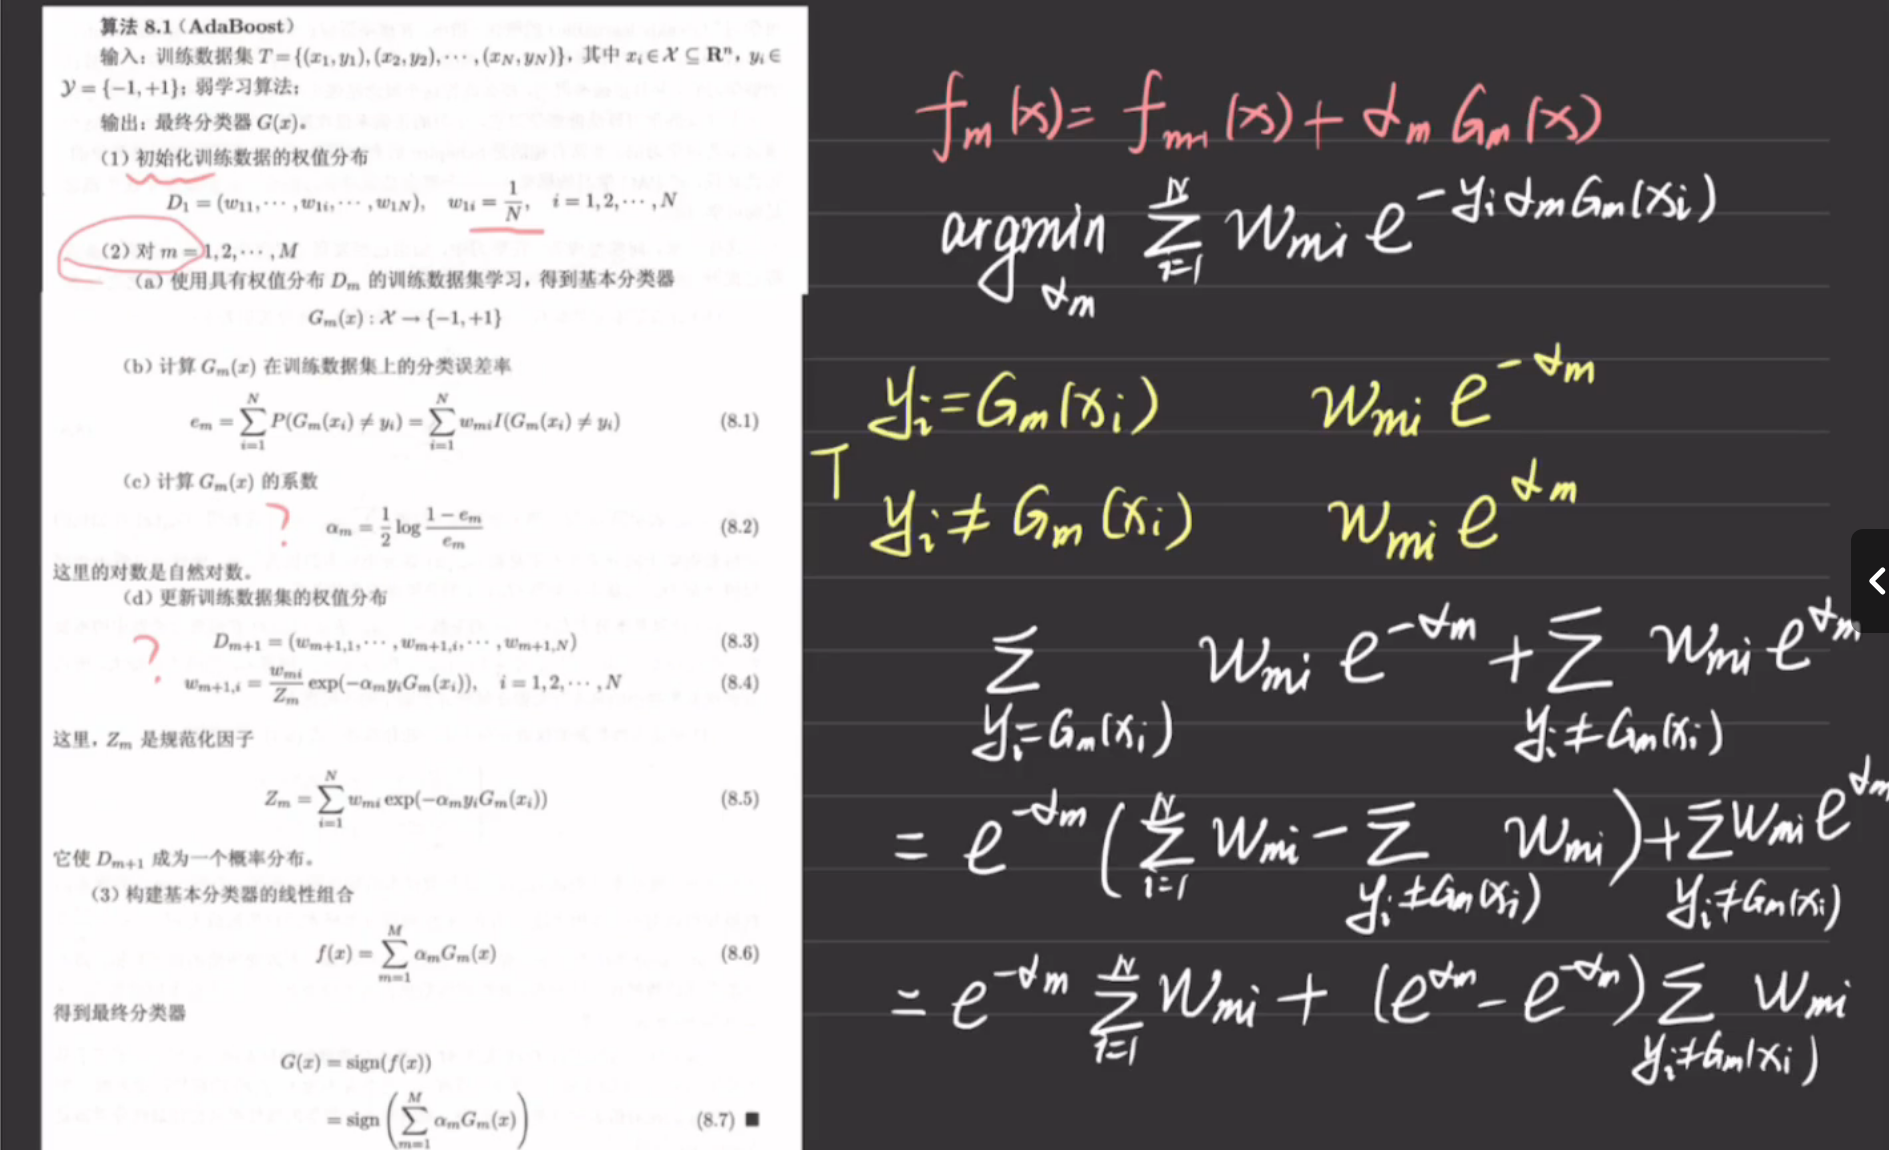 算法 8.1（AdaBoost）
输入：训练数据集 T={(x₁,y₁),(x₂,y₂),⋯,(x_N,y_N)}，其中 xᵢ∈𝒳⊆Rⁿ，yᵢ∈
𝒴={−1,+1}；弱学习算法；
输出：最终分类器 G(x)。
（1）初始化训练数据的权值分布
D₁=(w₁₁,⋯,w₁ᵢ,⋯,w₁N), w₁ᵢ=1/N, i=1,2,⋯,N
（2）对 m=1,2,⋯,M
（a）使用具有权值分布 Dₘ 的训练数据集学习，得到基本分类器
Gₘ(x):𝒳→{−1,+1}
（b）计算 Gₘ(x) 在训练数据集上的分类误差率
eₘ=∑_{i=1}^{N}P(Gₘ(xᵢ)≠yᵢ)=∑_{i=1}^{N}wₘᵢI(Gₘ(xᵢ)≠yᵢ) (8.1)
（c）计算 Gₘ(x) 的系数
? αₘ=1/2 log (1−eₘ)/eₘ (8.2)
这里的对数是自然对数。
（d）更新训练数据集的权值分布
? Dₘ₊₁=(w_{m+1,1},⋯,w_{m+1,i},⋯,w_{m+1,N}) (8.3)
w_{m+1,i}=wₘᵢ/Zₘ exp(−αₘyᵢGₘ(xᵢ)), i=1,2,⋯,N (8.4)
这里，Zₘ 是规范化因子
Zₘ=∑_{i=1}^{N}wₘᵢexp(−αₘyᵢGₘ(xᵢ)) (8.5)
它使 Dₘ₊₁ 成为一个概率分布。
（3）构建基本分类器的线性组合
f(x)=∑_{m=1}^{M}αₘGₘ(x) (8.6)
得到最终分类器
G(x)=sign(f(x))
=sign(∑_{m=1}^{M}αₘGₘ(x)) (8.7) ■
fₘ(x)=fₘ₋₁(x)+αₘGₘ(x)
argmin_{αₘ} ∑_{i=1}^{N} wₘᵢ e^{−yᵢαₘGₘ(xᵢ)}
yᵢ=Gₘ(xᵢ) wₘᵢ e^{−αₘ}
T
yᵢ≠Gₘ(xᵢ) wₘᵢ e^{αₘ}
∑_{yᵢ=Gₘ(xᵢ)} wₘᵢ e^{−αₘ}+∑_{yᵢ≠Gₘ(xᵢ)} wₘᵢ e^{αₘ}
=e^{−αₘ}(∑_{i=1}^{N} wₘᵢ−∑_{yᵢ≠Gₘ(xᵢ)} wₘᵢ)+∑_{yᵢ≠Gₘ(xᵢ)} wₘᵢ e^{αₘ}
=e^{−αₘ}∑_{i=1}^{N} wₘᵢ+(e^{αₘ}−e^{−αₘ})∑_{yᵢ≠Gₘ(xᵢ)} wₘᵢ